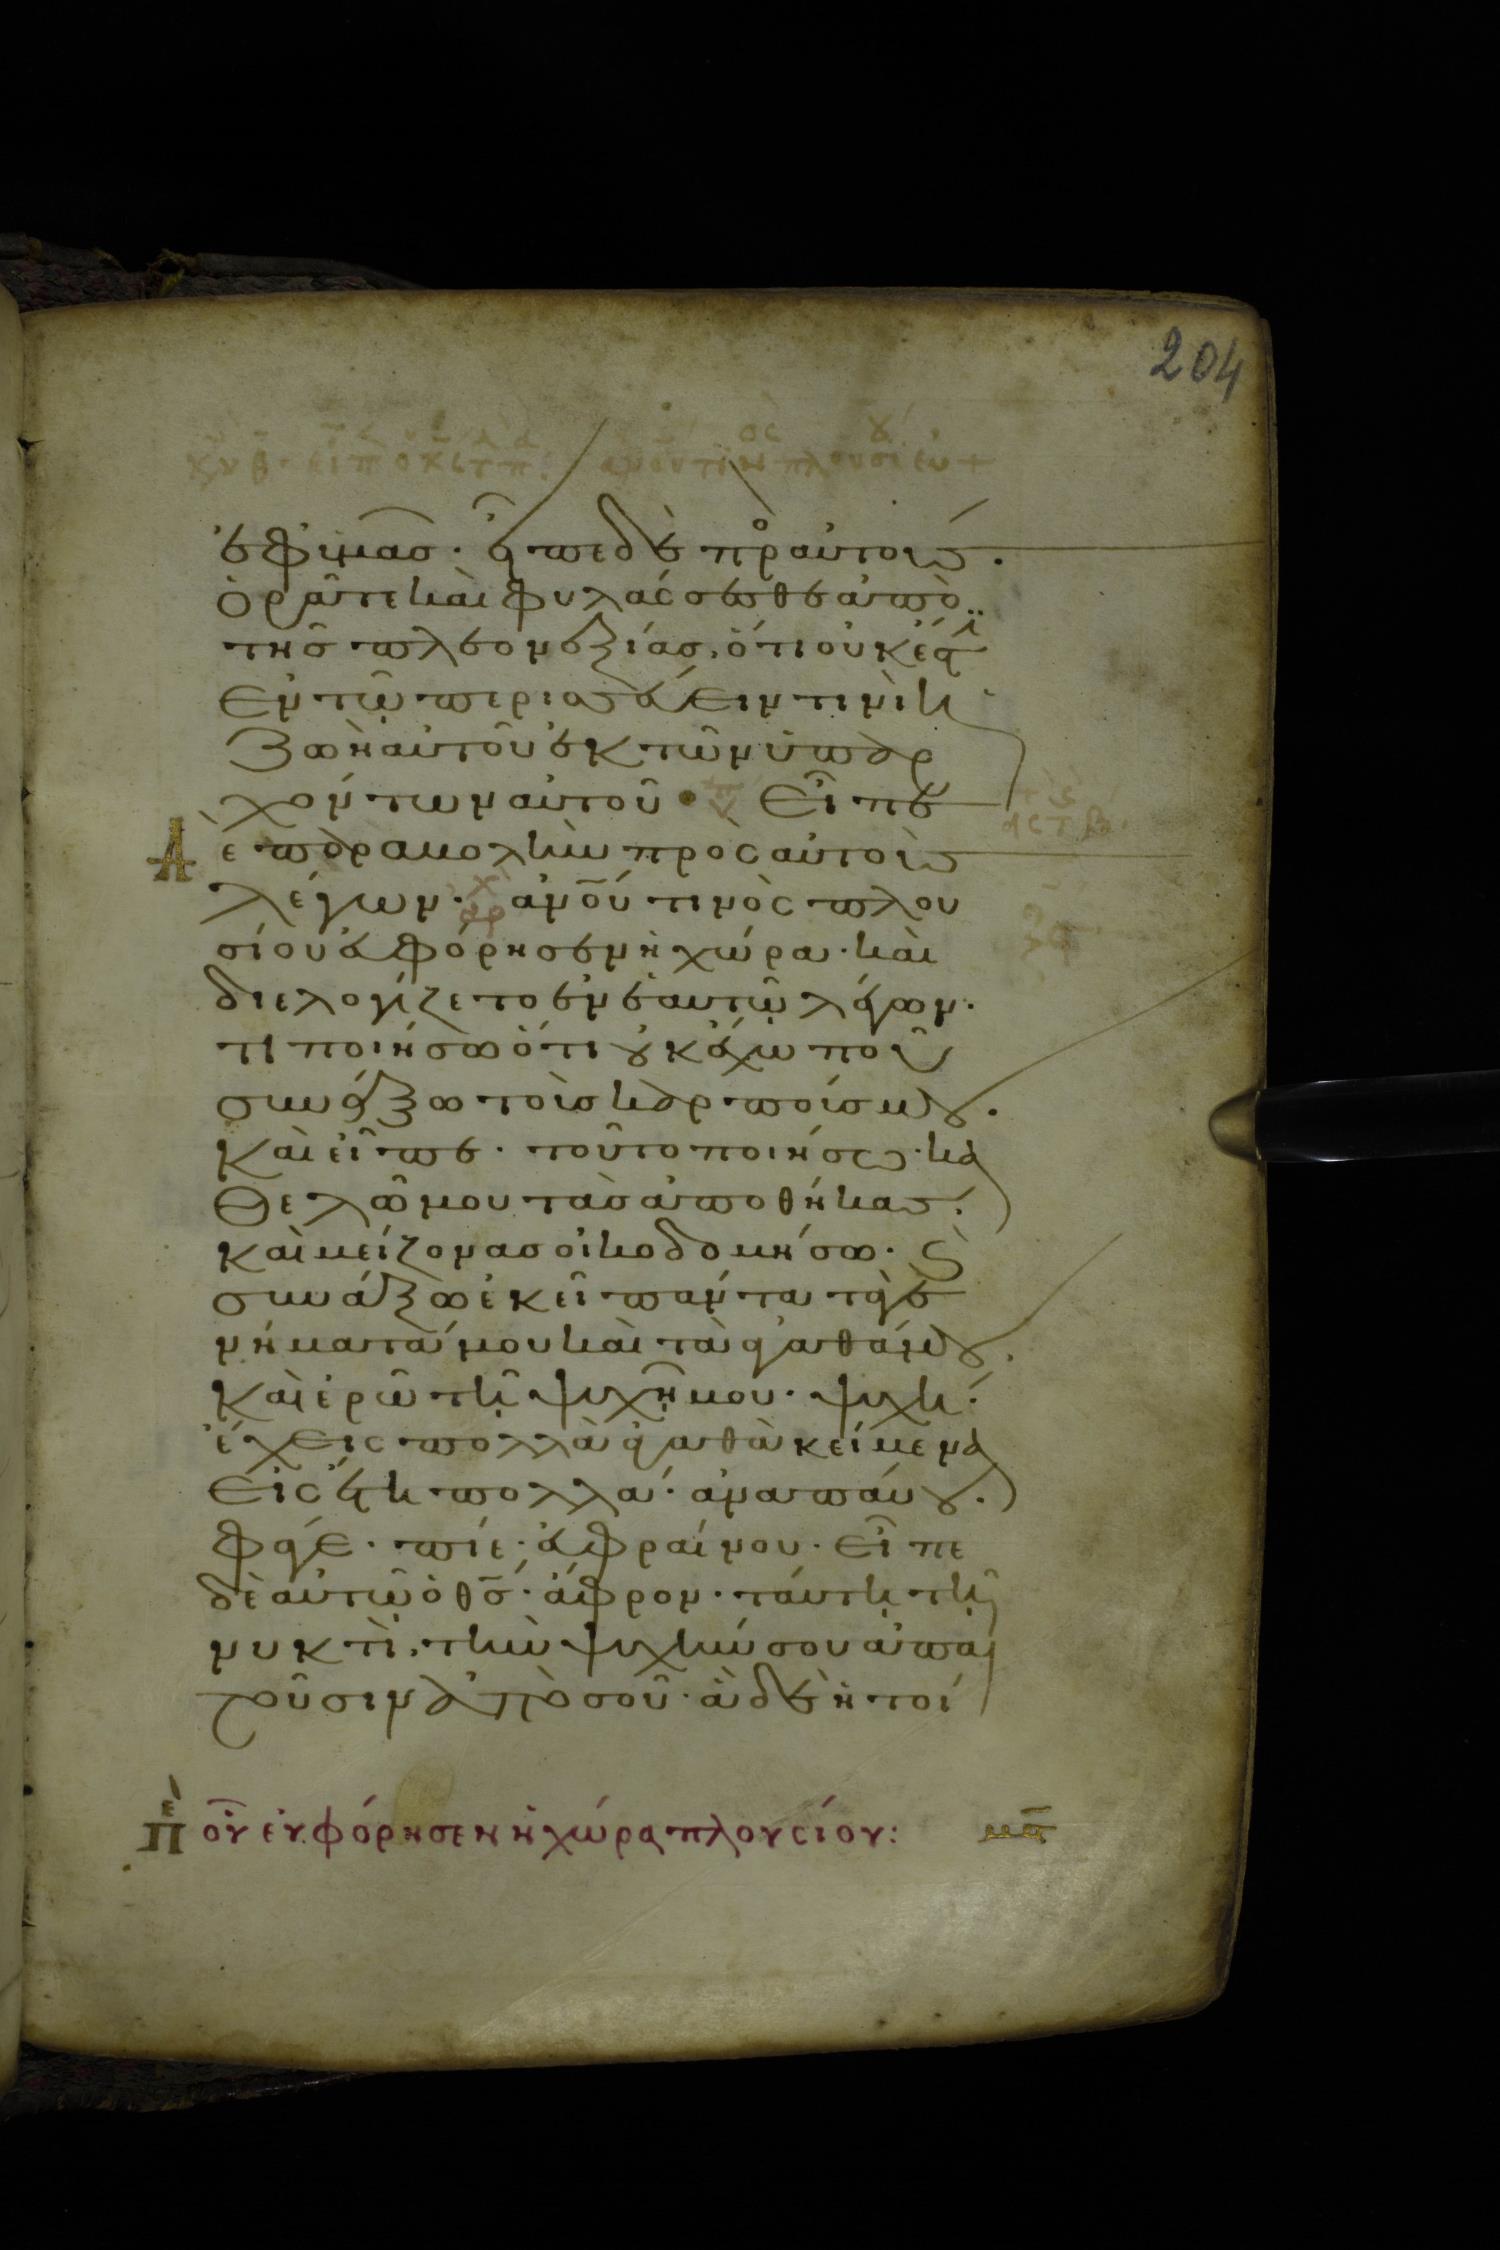 204
ἐφ ὑμᾶς. εἶπε δὲ πρ αὐτούς.
ὁρᾶτε καὶ φυλάσσεσθε ἀπὸ
τῆς πλεονεξίας, ὅτι οὐκ ἐν
ἐν τῶ περισσεύειν τινὶ ἡ
ζωὴ αὐτοῦ ἐκ τῶν ὑπαρ
χόντων αὐτοῦ. Εἶπε
δὲ παραβολὴν πρὸς αὐτοὺς
λέγων. ἀνου τινὸς πλου
σίου εὐφόρησεν ἡ χώρα. καὶ
διελογίζετο ἐν ἑαυτῶ λέγων.
τί ποιήσω ὅτι οὐκ ἔχω ποῦ
συνάξω τοὺς καρπούς μου.
καὶ εἶπε. τοῦτο ποιήσω. κα
θελῶ μου τὰς ἀποθήκας.
καὶ μείζονας οἰκοδομήσω. καὶ
συνάξω ἐκεῖ πάντα τὰ γε
νήματά μου καὶ τὰ ἀγαθά μου.
καὶ ἐρῶ τῆ ψυχῆ μου. ψυχή.
ἔχεις πολλὰ ἀγαθὰ κείμενα
εἰς ἔτη πολλά. ἀναπαύου.
φάγε. πίε. εὐφραίνου. εἶπε
δὲ αὐτῶ ὁ θς. ἄφρον. ταύτη τῆ
νυκτὶ, τὴν ψυχήν σου ἀπαι
τοῦσιν ἀπὸ σοῦ. ἃ δὲ ἡτοί
Πε οὗ εὐφόρησεν ἡ χώρα πλουσίου: